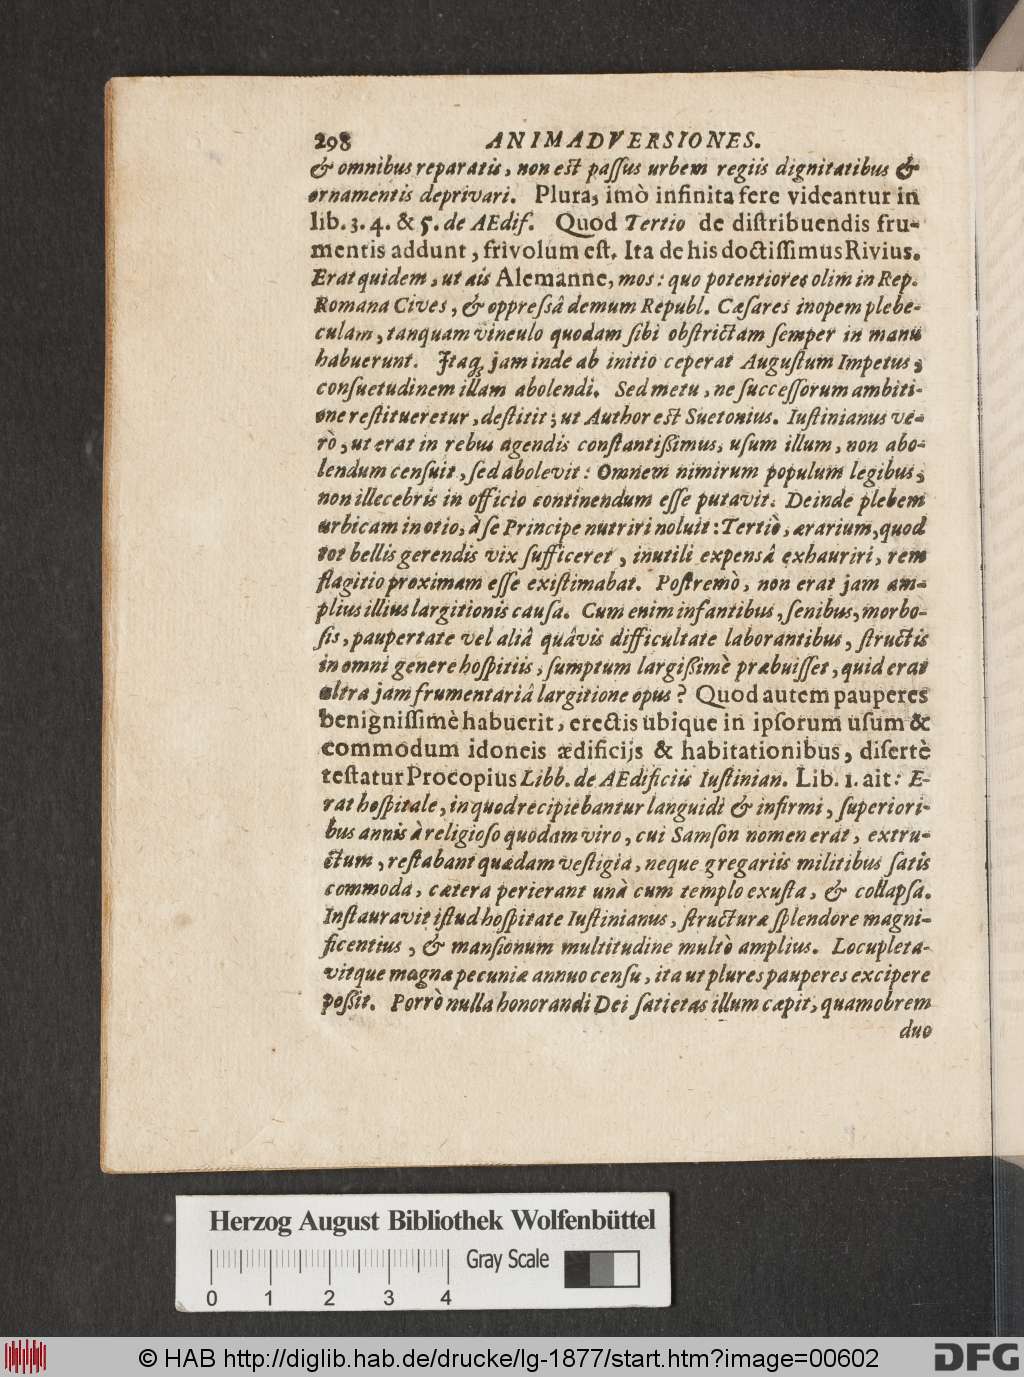 298 ANIMADVERSIONES.
& omnibus reparatis, non est paſſus urbem regiis dignitatibus &
ornamentis deprivari. Plura, imò infinita fere videantur in
lib. 3. 4. & 5. de AEdif. Quod Tertio de diſtribuendis fru-
mentis addunt, frivolum eſt. Ita de his doctiſſimus Rivius.
Erat quidem, ut ais Alemanne, mos: quo potentiores olim in Rep.
Romana Cives, & oppreſsâ demum Republ. Cæſares inopem plebe-
culam, tanquam vinculo quodam ſibi obſtrictam ſemper in manu
habuerunt. Itaq; jam inde ab initio ceperat Auguſtum Impetus,
conſuetudinem illam abolendi. Sed metu, ne ſucceſſorum ambiti-
one reſtitueretur, deſtitit; ut Author est Suetonius. Iuſtinianus ve-
rò, ut erat in rebus agendis conſtantiſsimus, uſum illum, non abo-
lendum cenſuit, ſed abolevit: Omnem nimirum populum legibus,
non illecebris in officio continendum eſſe putavit. Deinde plebem
urbicam in otio, à ſe Principe nutriri noluit: Tertiò, ærarium, quod
tot bellis gerendis vix ſufficeret, inutili expensâ exhauriri, rem
flagitio proximam eſſe exiſtimabat. Poſtremò, non erat jam am-
plius illius largitionis cauſa. Cum enim infantibus, ſenibus, morbo-
ſis, paupertate vel aliâ quâvis difficultate laborantibus, ſtructis
in omni genere hoſpitiis, ſumptum largiſsimè præbuiſſet, quid erat
ultra jam frumentariâ largitione opus? Quod autem pauperes
benigniſſimè habuerit, erectis ubique in ipſorum uſum &
commodum idoneis ædificijs & habitationibus, diſertè
teſtatur Procopius Libb. de AEdificiis Iuſtinian. Lib. 1. ait: E-
rat hoſpitale, in quod recipiebantur languidi & infirmi, ſuperiori-
bus annis à religioſo quodam viro, cui Samſon nomen erat, extru-
ctum, reſtabant quædam veſtigia, neque gregariis militibus ſatis
commoda, cætera perierant unà cum templo exuſta, & collapſa.
Inſtauravit iſtud hoſpitate Iuſtinianus, ſtructuræ ſplendore magni-
ficentius, & manſionum multitudine multò amplius. Locupleta-
vitque magnæ pecuniæ annuo cenſu, ita ut plures pauperes excipere
poſsit. Porrò nulla honorandi Dei ſatietas illum cæpit, quamobrem
duo
Herzog August Bibliothek Wolfenbüttel
Gray Scale
0 1 2 3 4
© HAB http://diglib.hab.de/drucke/lg-1877/start.htm?image=00602
DFG